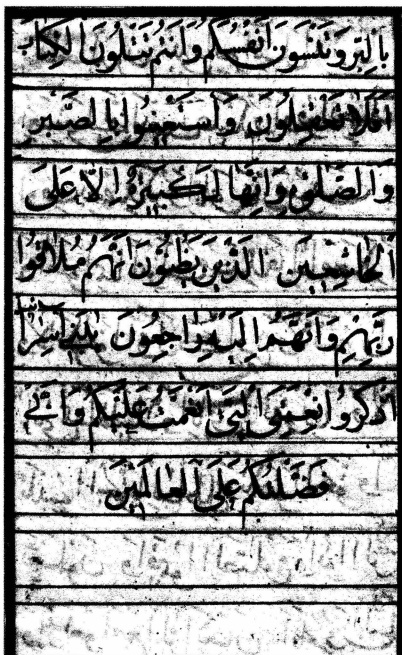 بِالْبِرِّ وَتَنْسَوْنَ أَنْفُسَكُمْ وَأَنْتُمْ تَتْلُونَ الْكِتَابَ
أَفَلَا تَعْقِلُونَ وَاسْتَعِينُوا بِالصَّبْرِ
وَالصَّلٰوةِ وَإِنَّهَا لَكَبِيرَةٌ إِلَّا عَلَى
الْخَاشِعِينَ الَّذِينَ يَظُنُّونَ أَنَّهُمْ مُلَاقُوا
رَبِّهِمْ وَأَنَّهُمْ إِلَيْهِ رَاجِعُونَ يَا بَنِي إِسْرَائِيلَ
اذْكُرُوا نِعْمَتِيَ الَّتِي أَنْعَمْتُ عَلَيْكُمْ وَأَنِّي
فَضَّلْتُكُمْ عَلَى الْعَالَمِينَ